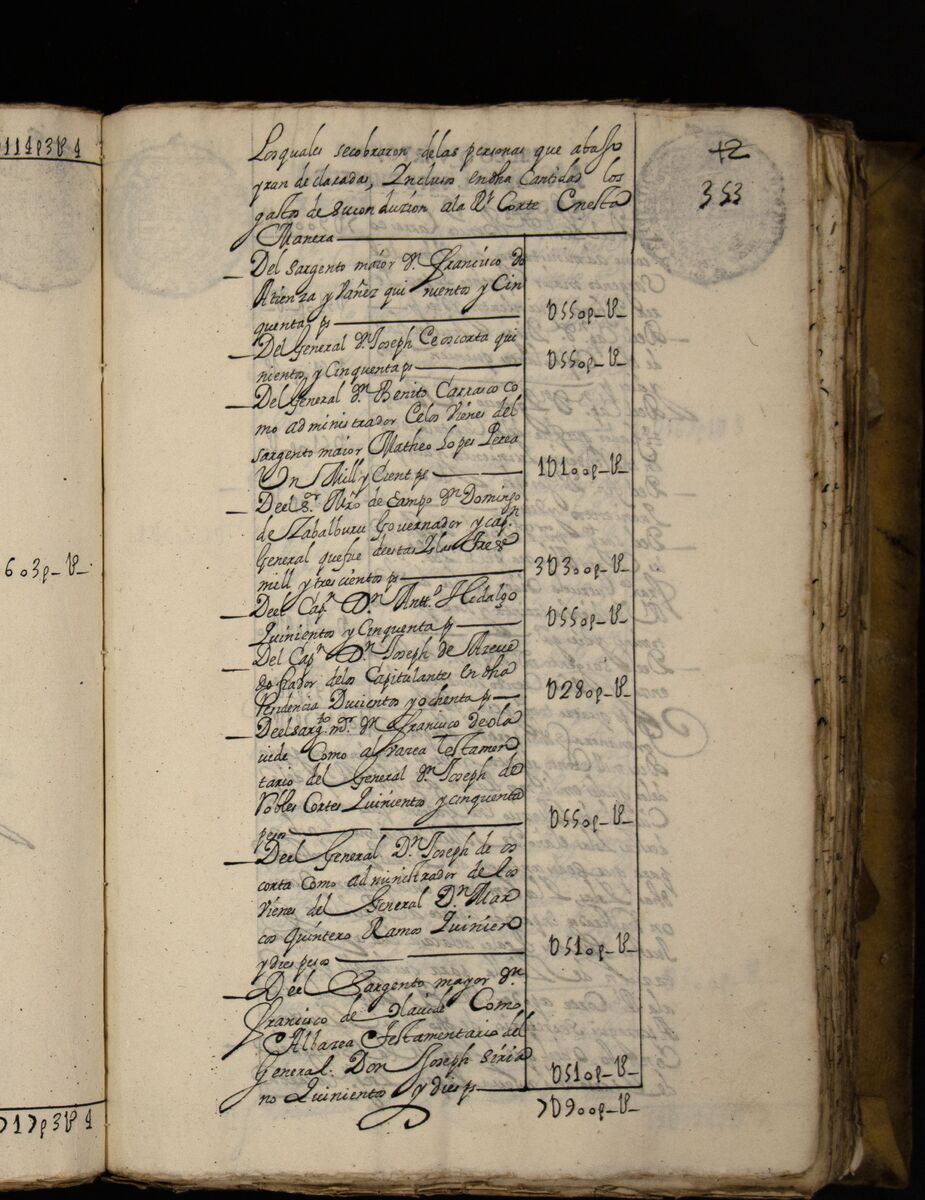 114p3tt 4
603p_tt_
717p3tt 4
42
353
Los quales se cobraron de las personas que abaxo
yran declaradas, Incluso en dha Cantidad los
gastos de su conduzion a la Rl Corte En esta
Manera
Del sargento maior Dn. Francisco de
Atienza y Vañez qui nientos y Cin
quenta ps
D550p_tt_
Del General Dn. Joseph Ceoscorta qui
nientos y Cinquenta ps
D550p_tt_
Del General Dn Benito Carrasco Co
mo administrador Celos Vienes del
sargento maior Matheo Lopes Perea
Un Mill y Cient ps
1D100p_tt_
Deel Sor. Mro de Campo Dn Domingo
de Zabalburu Governador y Capn
General que fue de estas Yslas Tres
mill y trescientos ps
3D300p_tt_
Deel Capn Dn Antto Hidalgo
Quinientos y Cinquenta ps
D550p_tt_
Del Capn Dn Joseph de Azeve
do fiador de los Capitulantes En dha
Residencia Ducientos y ochenta ps
D280p_tt_
Deel sargto. mor. Dn Francisco de ola
vide Como alvazea Testamen
tario del General Dn Joseph de
Robles Cortes Quinientos y cinquenta
pesos
D550p_tt_
Deel General Dn Joseph de os
corta como administrador de los
Vienes del General Dn Mar
cos Quintero Ramos Quinien
y dies pesos
D510p_tt_
Deel Sargento mayor Dn
Francisco de olavide Como
Albazea Testamentario del
General. Don Joseph Seria
no Quinientos y dies ps
D510p_tt_
7D900p_tt_